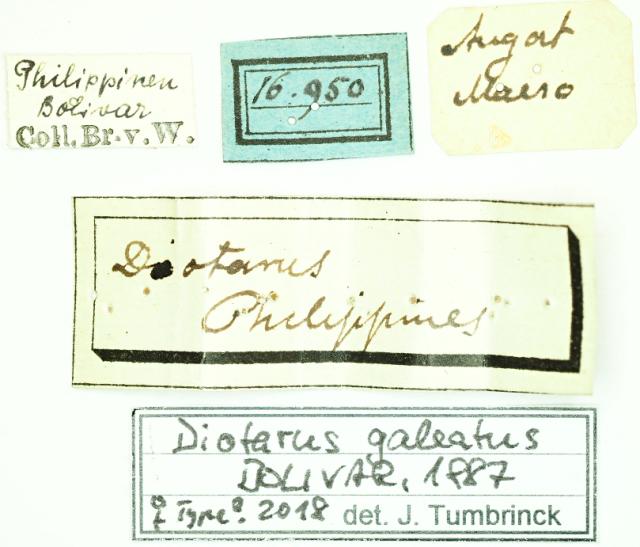 Philippinen
Bolivar
Coll. Br. v. W.
16.950
Angat
Diotarus
Philippines
Diotarus galeatus
BOLIVAR, 1887
♀ Type? 2018 det. J. Tumbrinck